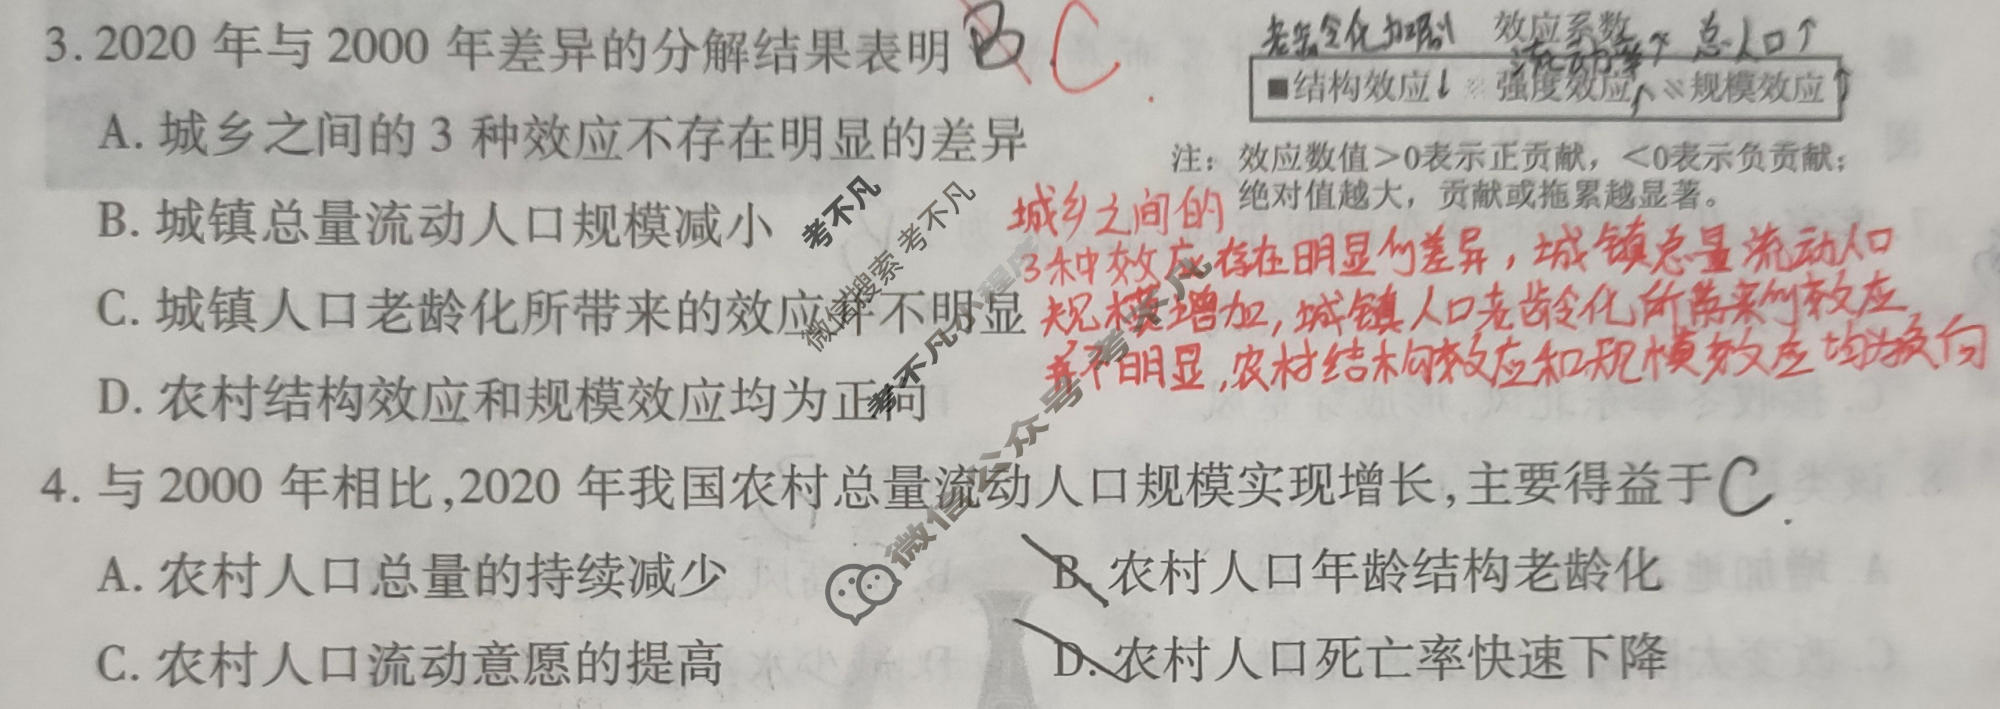 3. 2020 年与 2000 年差异的分解结果表明 B C
A. 城乡之间的 3 种效应不存在明显的差异
B. 城镇总量流动人口规模减小
C. 城镇人口老龄化所带来的效应并不明显
D. 农村结构效应和规模效应均为正向
老龄化加剧 效应系数 流动率↑ 总人口↑
■结构效应↓ 强度效应↑ 规模效应↑
注：效应数值＞0表示正贡献，＜0表示负贡献；
绝对值越大，贡献或拖累越显著。
城乡之间的
3种效应存在明显的差异，城镇总量流动人口
规模增加，城镇人口老龄化所带来的效应
并不明显，农村结构效应和规模效应均为负向
4. 与 2000 年相比,2020 年我国农村总量流动人口规模实现增长,主要得益于 C
A. 农村人口总量的持续减少 B. 农村人口年龄结构老龄化
C. 农村人口流动意愿的提高 D. 农村人口死亡率快速下降
考不凡
微信搜索 考不凡
考不凡 小程序
微信公众号 考不凡